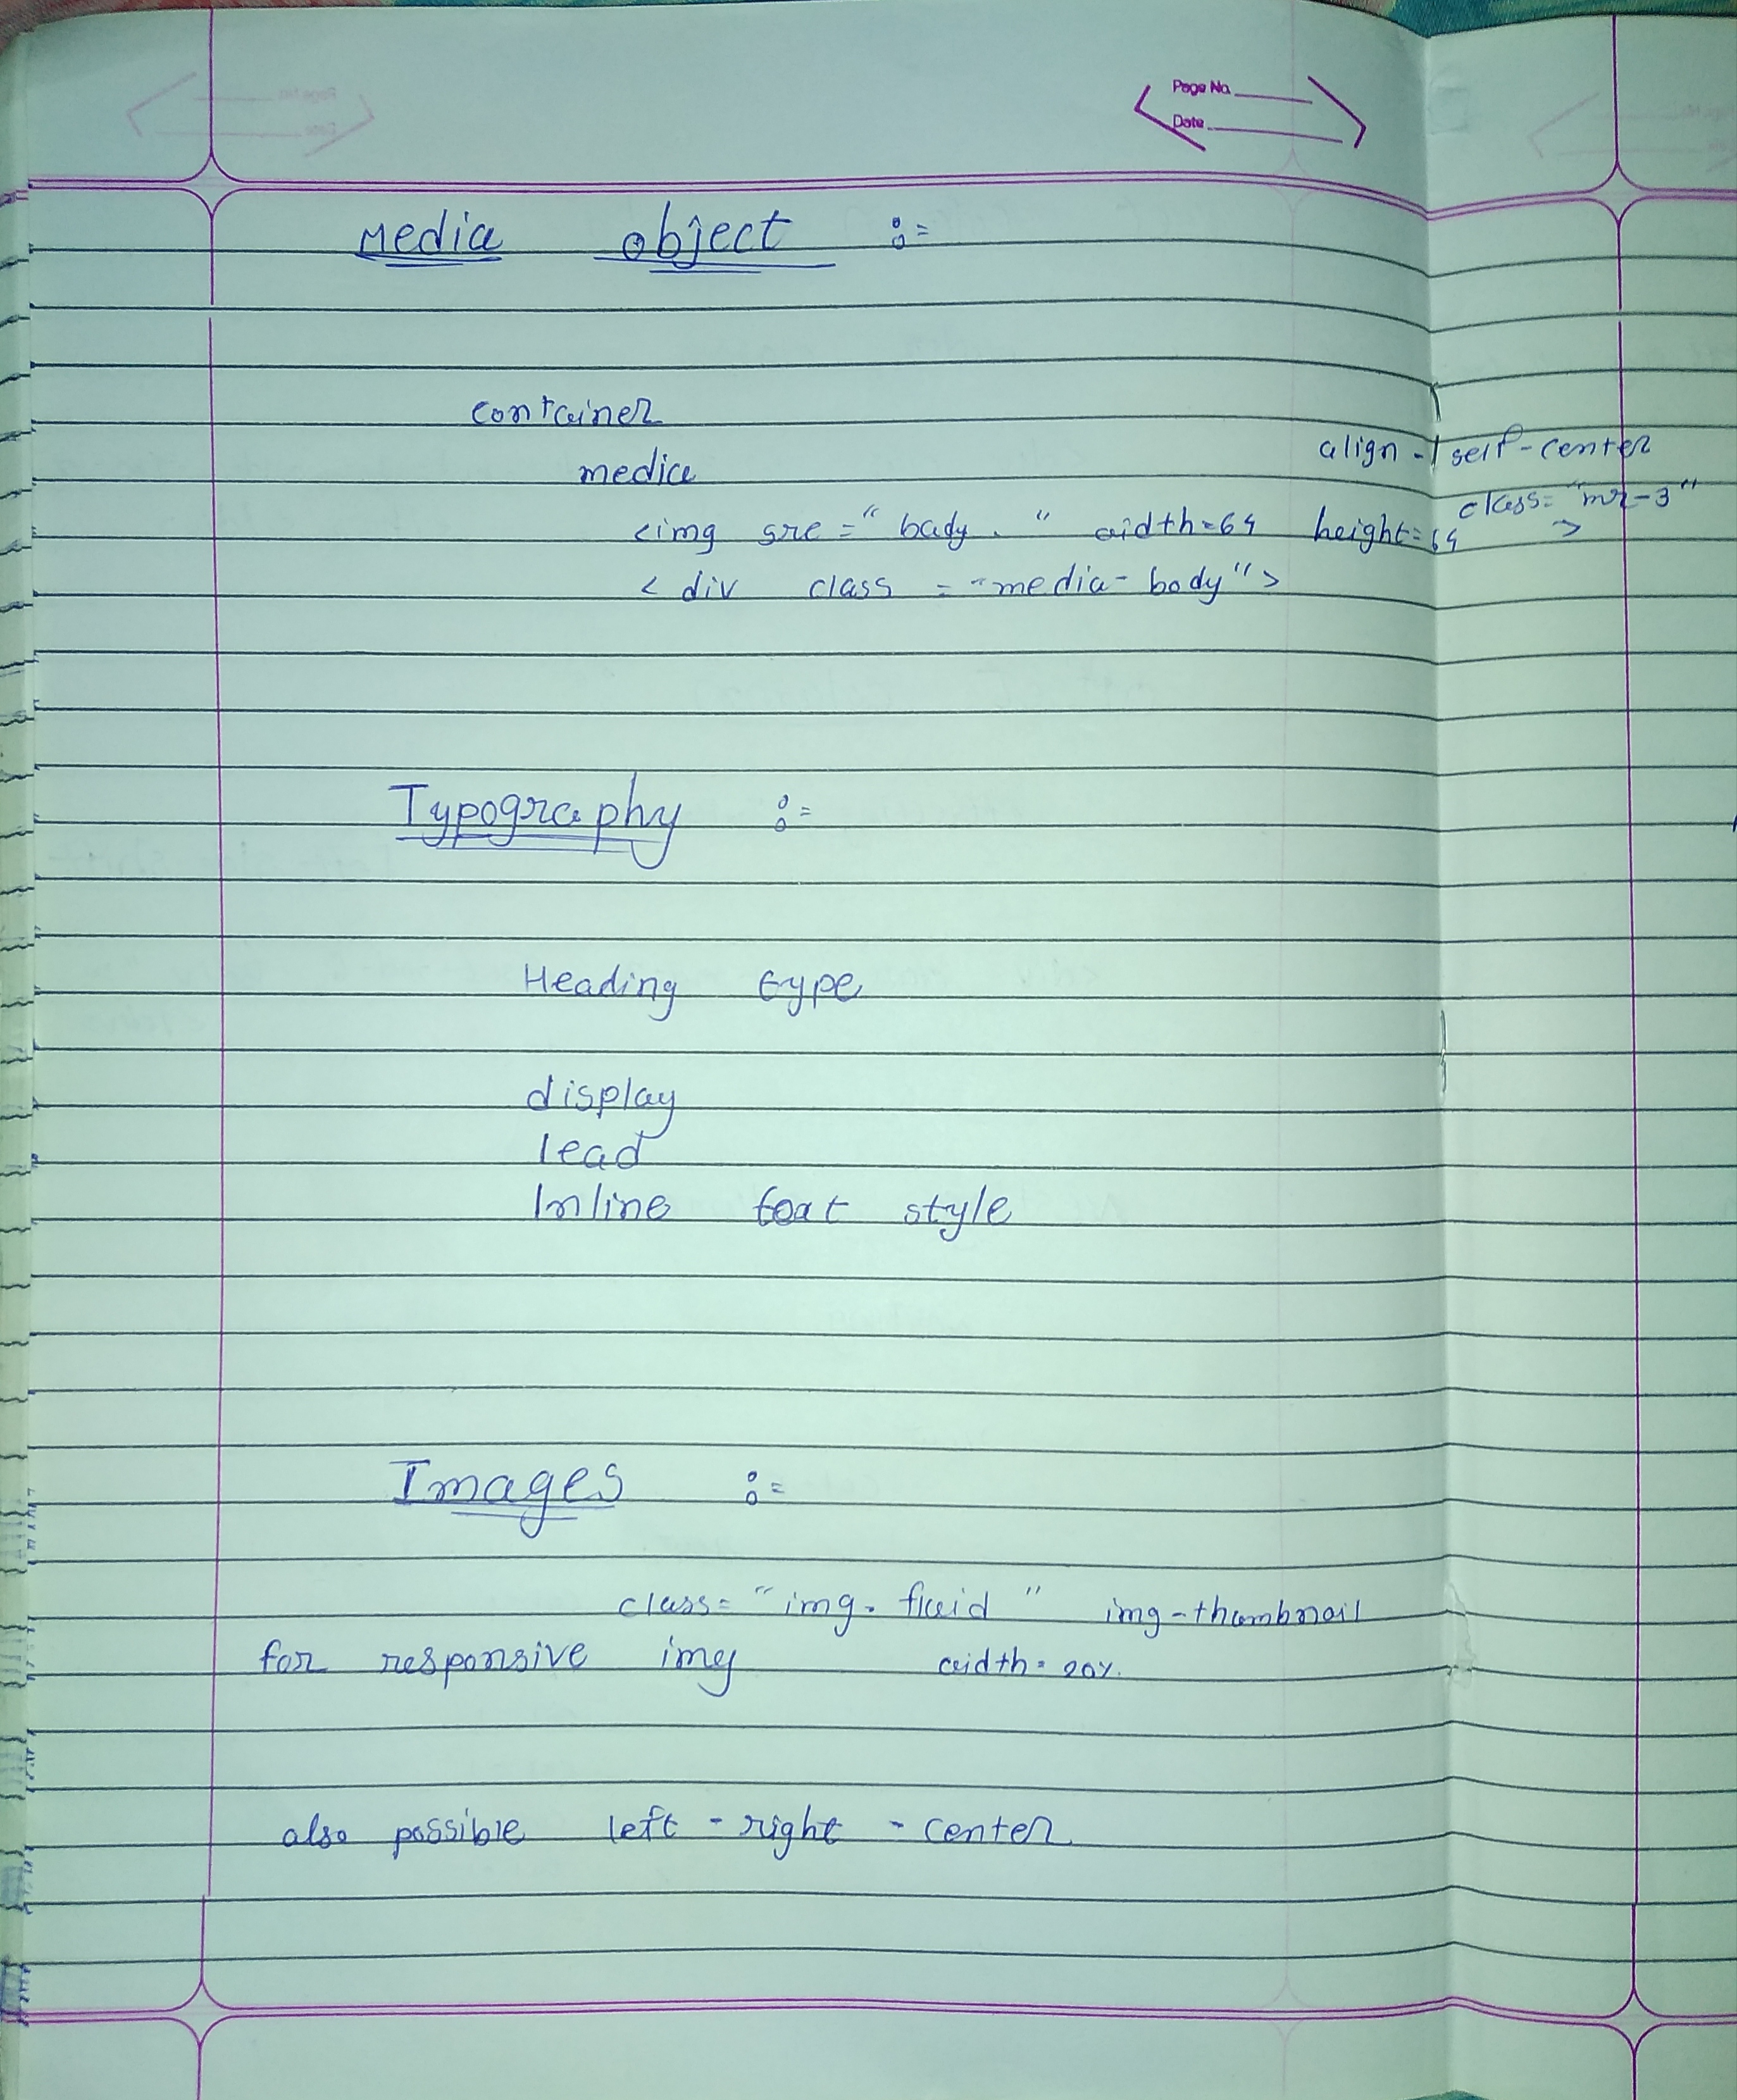 Page No.
Date
Media object :=
container
media
align - self-center
class= "mr-3"
<img src =" bady . " width=64 height=64 >
< div class = "media-body">
Typography :=
Heading type
display
lead
Inline text style
Images :=
class= "img-fluid " img-thumbnail
for responsive img width= 20%.
also possible left - right - center